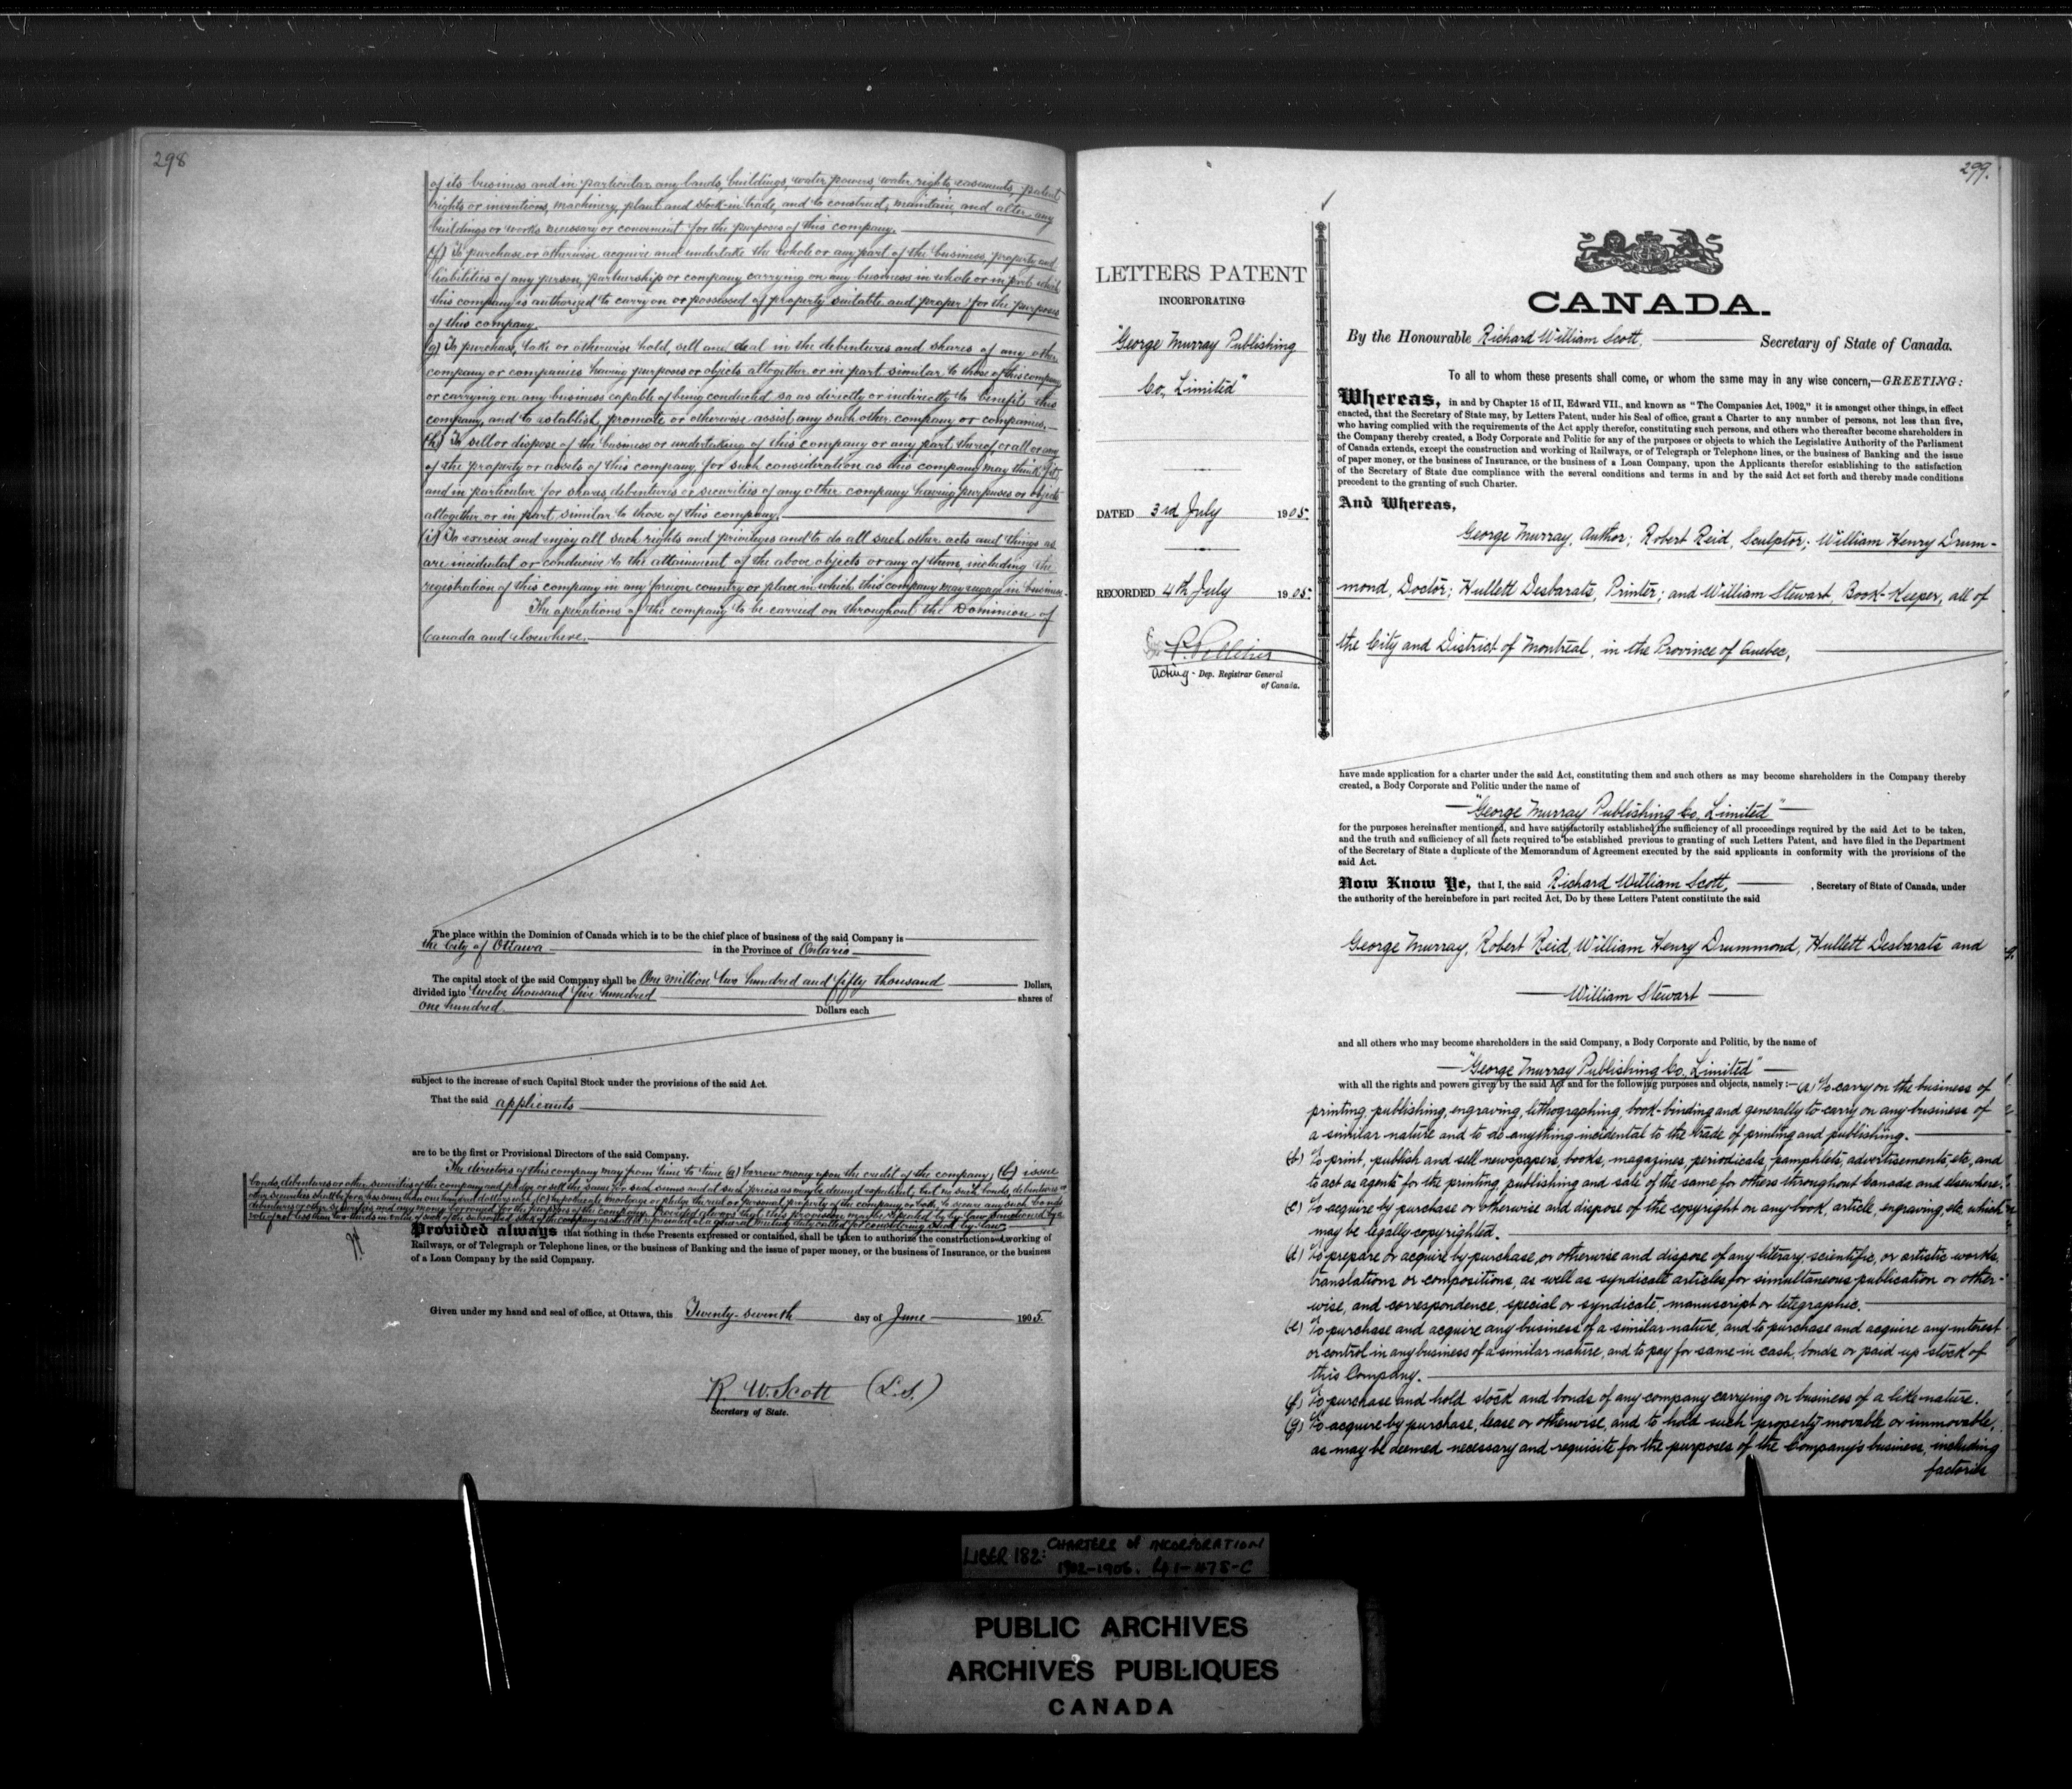 298
of its business and in particular any lands, buildings, water powers, water rights, easements, patent
rights or inventions, machinery, plant and stock-in-trade, and to construct, maintain, and alter any
buildings or works necessary or convenient for the purposes of this company.
(f) To purchase or otherwise acquire and undertake the whole or any part of the business, property and
liabilities of any person, partnership or company carrying on any business in whole or in part which
this company is authorized to carry on or possessed of property suitable and proper for the purposes
of this company.
(g) To purchase, take or otherwise hold, sell and deal in the debentures and shares of any other
company or companies having purposes or objects altogether or in part similar to those of this company
or carrying on any business capable of being conducted so as directly or indirectly to benefit this
company, and to establish, promote or otherwise assist any such other company or companies.
(h) To sell or dispose of the business or undertaking of this company or any part thereof or all or any
of the property or assets of this company for such consideration as this company may think fit,
and in particular for shares, debentures or securities of any other company having purposes or objects
altogether or in part similar to those of this company.
(i) To exercise and enjoy all such rights and privileges and to do all such other acts and things as
are incidental or conducive to the attainment of the above objects or any of them, including the
registration of this company in any foreign country or place in which this company may engage in business.
The operations of the company to be carried on throughout the Dominion of
Canada and elsewhere.
The place within the Dominion of Canada which is to be the chief place of business of the said Company is
the City of Ottawa in the Province of Ontario
The capital stock of the said Company shall be One million two hundred and fifty thousand Dollars,
divided into twelve thousand five hundred shares of
one hundred Dollars each
subject to the increase of such Capital Stock under the provisions of the said Act.
That the said applicants
are to be the first or Provisional Directors of the said Company.
The directors of this company may from time to time (a) borrow money upon the credit of the company; (b) issue
bonds, debentures or other securities of the company and pledge or sell the same for such sums and at such prices as may be deemed expedient, but no such bonds, debentures or
other securities shall be for a less sum than one hundred dollars each; (c) hypothecate, mortgage or pledge the real or personal property of the company or both, to secure any such bonds
debentures or other securities and any money borrowed for the purposes of the company. Provided always that this provision may be repealed by by-law sanctioned by a
vote of not less than two thirds in value of such of the subscribed stock of the company as shall be represented at a general meeting duly called for considering such by-law.
Provided always that nothing in these Presents expressed or contained, shall be taken to authorize the construction and working of
Railways, or of Telegraph or Telephone lines, or the business of Banking and the issue of paper money, or the business of Insurance, or the business
of a Loan Company by the said Company.
Given under my hand and seal of office, at Ottawa, this Twenty-seventh day of June 1905.
R. W. Scott (L.S.)
Secretary of State.
299.
LETTERS PATENT
INCORPORATING
"George Murray Publishing
Co., Limited"
DATED 3rd July 1905.
RECORDED 4th July 1905.
P. Pelletier
Acting - Dep. Registrar General
of Canada.
CANADA.
By the Honourable Richard William Scott, Secretary of State of Canada.
To all to whom these presents shall come, or whom the same may in any wise concern,—GREETING:
Whereas, in and by Chapter 15 of II, Edward VII., and known as "The Companies Act, 1902," it is amongst other things, in effect
enacted, that the Secretary of State may, by Letters Patent, under his Seal of office, grant a Charter to any number of persons, not less than five,
who having complied with the requirements of the Act apply therefor, constituting such persons, and others who thereafter become shareholders in
the Company thereby created, a Body Corporate and Politic for any of the purposes or objects to which the Legislative Authority of the Parliament
of Canada extends, except the construction and working of Railways, or of Telegraph or Telephone lines, or the business of Banking and the issue
of paper money, or the business of Insurance, or the business of a Loan Company, upon the Applicants therefor establishing to the satisfaction
of the Secretary of State due compliance with the several conditions and terms in and by the said Act set forth and thereby made conditions
precedent to the granting of such Charter.
And Whereas,
George Murray, Author; Robert Reid, Sculptor; William Henry Drum-
mond, Doctor; Hullett Desbarats, Printer; and William Stewart, Book-Keeper, all of
the City and District of Montreal, in the Province of Quebec,
have made application for a charter under the said Act, constituting them and such others as may become shareholders in the Company thereby
created, a Body Corporate and Politic under the name of
"George Murray Publishing Co., Limited"
for the purposes hereinafter mentioned, and have satisfactorily established the sufficiency of all proceedings required by the said Act to be taken,
and the truth and sufficiency of all facts required to be established previous to granting of such Letters Patent, and have filed in the Department
of the Secretary of State a duplicate of the Memorandum of Agreement executed by the said applicants in conformity with the provisions of the
said Act.
Now Know Ye, that I, the said Richard William Scott, , Secretary of State of Canada, under
the authority of the hereinbefore in part recited Act, Do by these Letters Patent constitute the said
George Murray, Robert Reid, William Henry Drummond, Hullett Desbarats and
William Stewart
and all others who may become shareholders in the said Company, a Body Corporate and Politic, by the name of
"George Murray Publishing Co., Limited"
with all the rights and powers given by the said Act and for the following purposes and objects, namely :—(a) To carry on the business of
printing, publishing, engraving, lithographing, book-binding and generally to carry on any business of
a similar nature and to do anything incidental to the trade of printing and publishing.
(b) To print, publish and sell newspapers, books, magazines, periodicals, pamphlets, advertisements, etc., and
to act as agents for the printing, publishing and sale of the same for others throughout Canada and elsewhere.
(c) To acquire by purchase or otherwise and dispose of the copyright on any book, article, engraving, etc. which
may be legally copyrighted.
(d) To prepare or acquire by purchase, or otherwise and dispose of any literary, scientific, or artistic works,
translations or compositions, as well as syndicate articles for simultaneous publication or other-
wise, and correspondence, special or syndicate, manuscript or telegraphic.
(e) To purchase and acquire any business of a similar nature, and to purchase and acquire any interest
or control in any business of a similar nature, and to pay for same in cash, bonds or paid up stock of
this Company.
(f) To purchase and hold stock and bonds of any company carrying on business of a like nature.
(g) To acquire by purchase, lease or otherwise, and to hold such property movable or immovable,
as may be deemed necessary and requisite for the purposes of the Company's business, including
factories
LIBER 182: CHARTERS of INCORPORATION
1902-1906.
PUBLIC ARCHIVES
ARCHIVES PUBLIQUES
CANADA